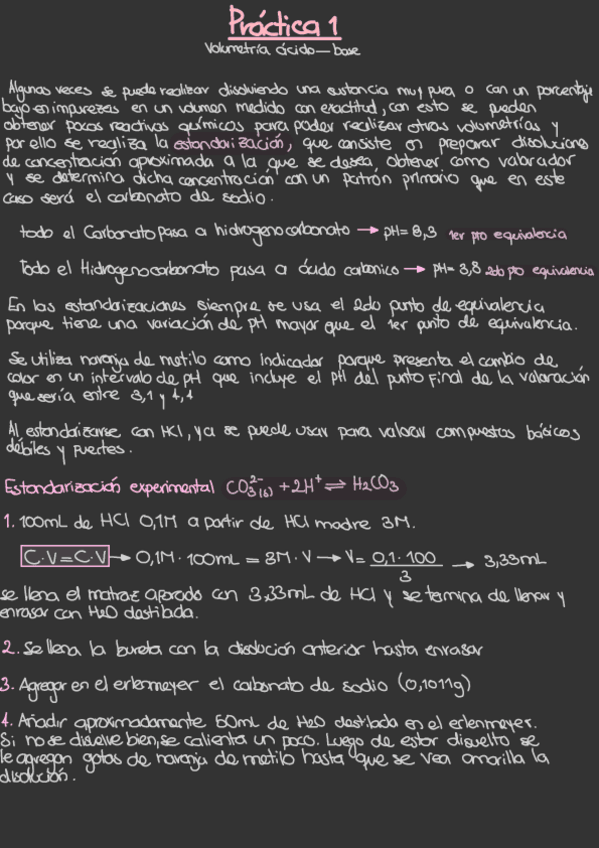 Práctica 1
Volumetría ácido-base
Algunas veces se puede realizar disolviendo una sustancia muy pura o con un porcentaje
bajo en impurezas en un volumen medido con exactitud, con esto se pueden
obtener pocos reactivos químicos para poder realizar otras volumetrías y
por ello se realiza la estandarización, que consiste en preparar disoluciones
de concentración aproximada a la que se desea obtener como valorador
y se determina dicha concentración con un patrón primario que en este
caso será el carbonato de sodio.
todo el Carbonato pasa a hidrogenocarbonato → pH= 8,3 1er pto equivalencia
Todo el Hidrogenocarbonato pasa a ácido carbónico → pH= 3,8 2do pto equivalencia
En las estandarizaciones siempre se usa el 2do punto de equivalencia
porque tiene una variación de pH mayor que el 1er punto de equivalencia.
Se utiliza naranja de metilo como Indicador porque presenta el cambio de
color en un intervalo de pH que incluye el pH del punto final de la valoración
que sería entre 3,1 y 4,4
Al estandarizarse con HCl, ya se puede usar para valorar compuestos básicos
débiles y fuertes.
Estandarización experimental CO₃²⁻(s) + 2H⁺ ⇌ H₂CO₃
1. 100mL de HCl 0,1M a partir de HCl madre 3M.
C·V=C·V → 0,1M · 100mL = 3M · V → V= 0,1 · 100 / 3 → 3,33mL
se llena el matraz aforado con 3,33mL de HCl y se termina de llenar y
enrasar con H₂O destilada.
2. Se llena la bureta con la disolución anterior hasta enrasar
3. Agregar en el erlenmeyer el carbonato de sodio (0,1011g)
4. Añadir aproximadamente 50mL de H₂O destilada en el erlenmeyer.
Si no se disuelve bien, se calienta un poco. Luego de estar disuelto se
le agregan gotas de naranja de metilo hasta que se vea amarilla la
disolución.